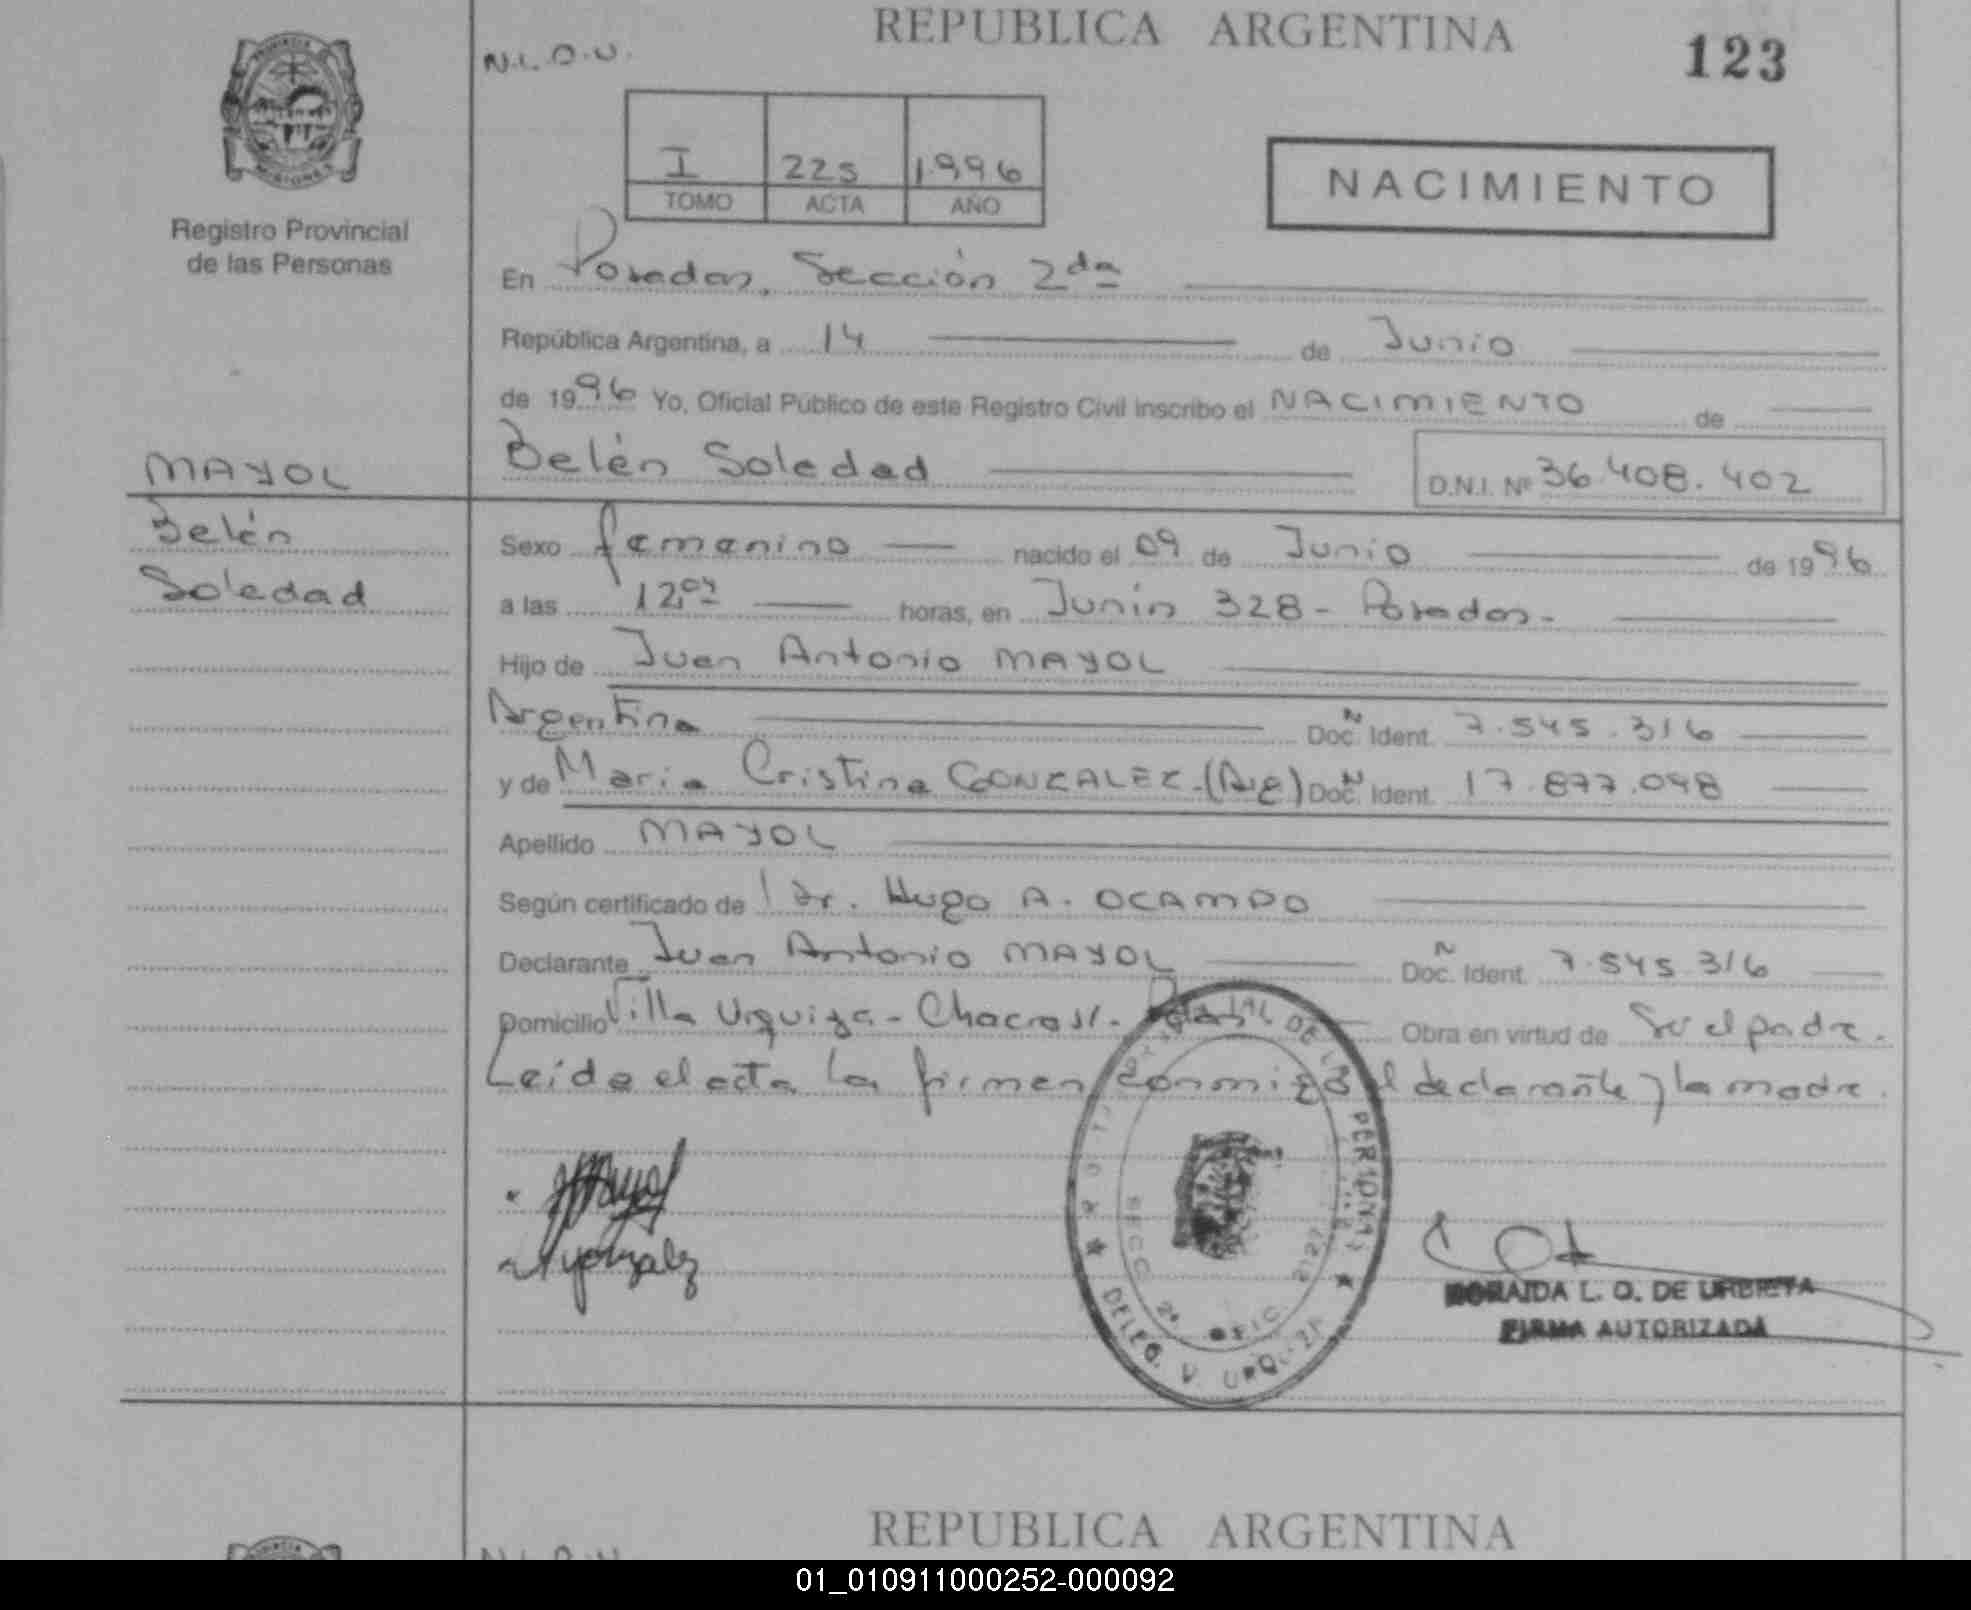 REPUBLICA ARGENTINA
123
N.L.O.U.
I 225 1996
TOMO ACTA AÑO
NACIMIENTO
PROVINCIA
MISIONES
Registro Provincial
de las Personas
En Posadas, Sección 2da
República Argentina, a 14 de Junio
de 1996 Yo, Oficial Público de este Registro Civil inscribo el NACIMIENTO de
MAYOL
Belén Soledad
D.N.I. Nº 36.408.402
Belén
Soledad
Sexo femenino nacido el 09 de Junio de 1996
a las 12,04 horas, en Junín 328 - Posadas.
Hijo de Juan Antonio MAYOL
Argentina Doc. Ident. 7.545.316
y de Maria Cristina GONZALEZ.(Arg) Doc. Ident. 17.877.048
Apellido MAYOL
Según certificado de Dr. Hugo A. OCAMPO
Declarante Juan Antonio MAYOL Doc. Ident. 7.545.316
Domicilio Villa Urquiza - Chacra 51. Pdas. Obra en virtud de Ser el padre.
Leida el acta la firman conmigo el declarante y la madre.
DE LAS PERSONAS
SECC 2a OFIC.
DELEG. V. URQUIZA
ZORAIDA L. O. DE URBIETA
FIRMA AUTORIZADA
REPUBLICA ARGENTINA
N.L.O.U.
01_010911000252-000092